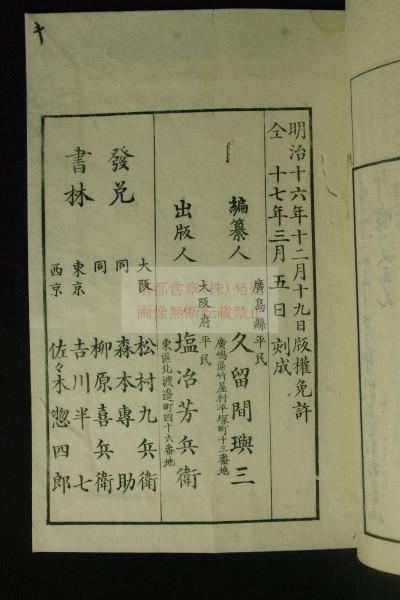 明治十六年十二月十九日版權免許
仝 十七年三月五日刻成
廣島縣平民
編纂人 久留間璵三
廣嶋區竹屋村平塚町十三番地
大阪府平民
出版人 塩冶芳兵衛
東區北渡邉町四十六番地
發兌
書林
大阪 松村九兵衛
同 森本專助
同 柳原喜兵衛
東京 吉川半七
西京 佐々木惣四郎
京都含章(株)発
画像無断転載禁止